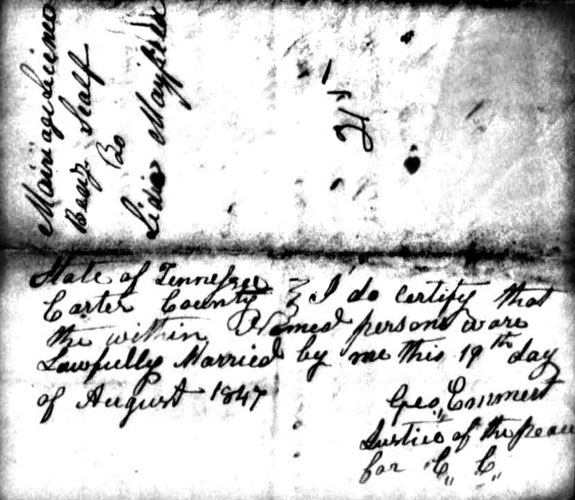 Marriage License
Benj. Scalf
To
Lida Mayfield
State of Tennessee
Carter County } I do certify that
the within Named persons ware
Lawfully Married by me this 19th day
of August 1847
Geo,, Emmert
Justice of the peace
for C,, C,,